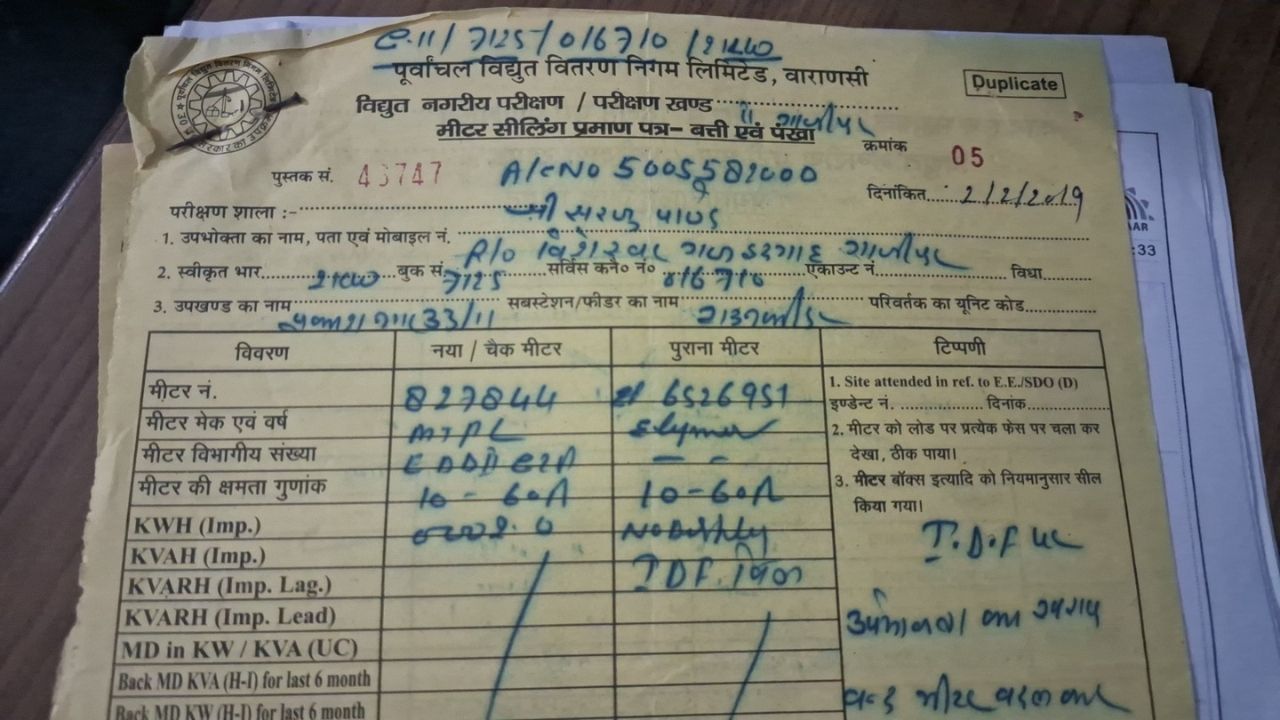 / 7125 / 016710 / 2KW
पूर्वांचल विद्युत वितरण निगम लिमिटेड, वाराणसी
Duplicate
विद्युत नगरीय परीक्षण / परीक्षण खण्ड
मीटर सीलिंग प्रमाण पत्र– बत्ती एवं पंखा
क्रमांक 05
पुस्तक सं. 43747 A/c No 5005582000
दिनांकित 2/2/2019
परीक्षण शाला :-
1. उपभोक्ता का नाम, पता एवं मोबाइल नं. श्री सरजू पाण्डे
R/o
2. स्वीकृत भार 2KW बुक सं. 7125 सर्विस कनै० नं० 016710 एकाउन्ट नं. विधा
3. उपखण्ड का नाम 33/11 सबस्टेशन/फीडर का नाम परिवर्तक का यूनिट कोड
विवरण नया / चैक मीटर पुराना मीटर टिप्पणी
मीटर नं. 827844 6526951
मीटर मेक एवं वर्ष
मीटर विभागीय संख्या - -
मीटर की क्षमता गुणांक 10 - 60A 10-60A
KWH (Imp.) No Display
KVAH (Imp.)
KVARH (Imp. Lag.) IDF
KVARH (Imp. Lead)
MD in KW / KVA (UC)
Back MD KVA (H-I) for last 6 month
Back MD KW (H-I) for last 6 month
1. Site attended in ref. to E.E./SDO (D)
इण्डेन्ट नं. दिनांक
2. मीटर को लोड पर प्रत्येक फेस पर चला कर
देखा, ठीक पाया।
3. मीटर बॉक्स इत्यादि को नियमानुसार सील
किया गया।
I.D.F पर
उपभोक्ता का
मीटर बदल कर
:33